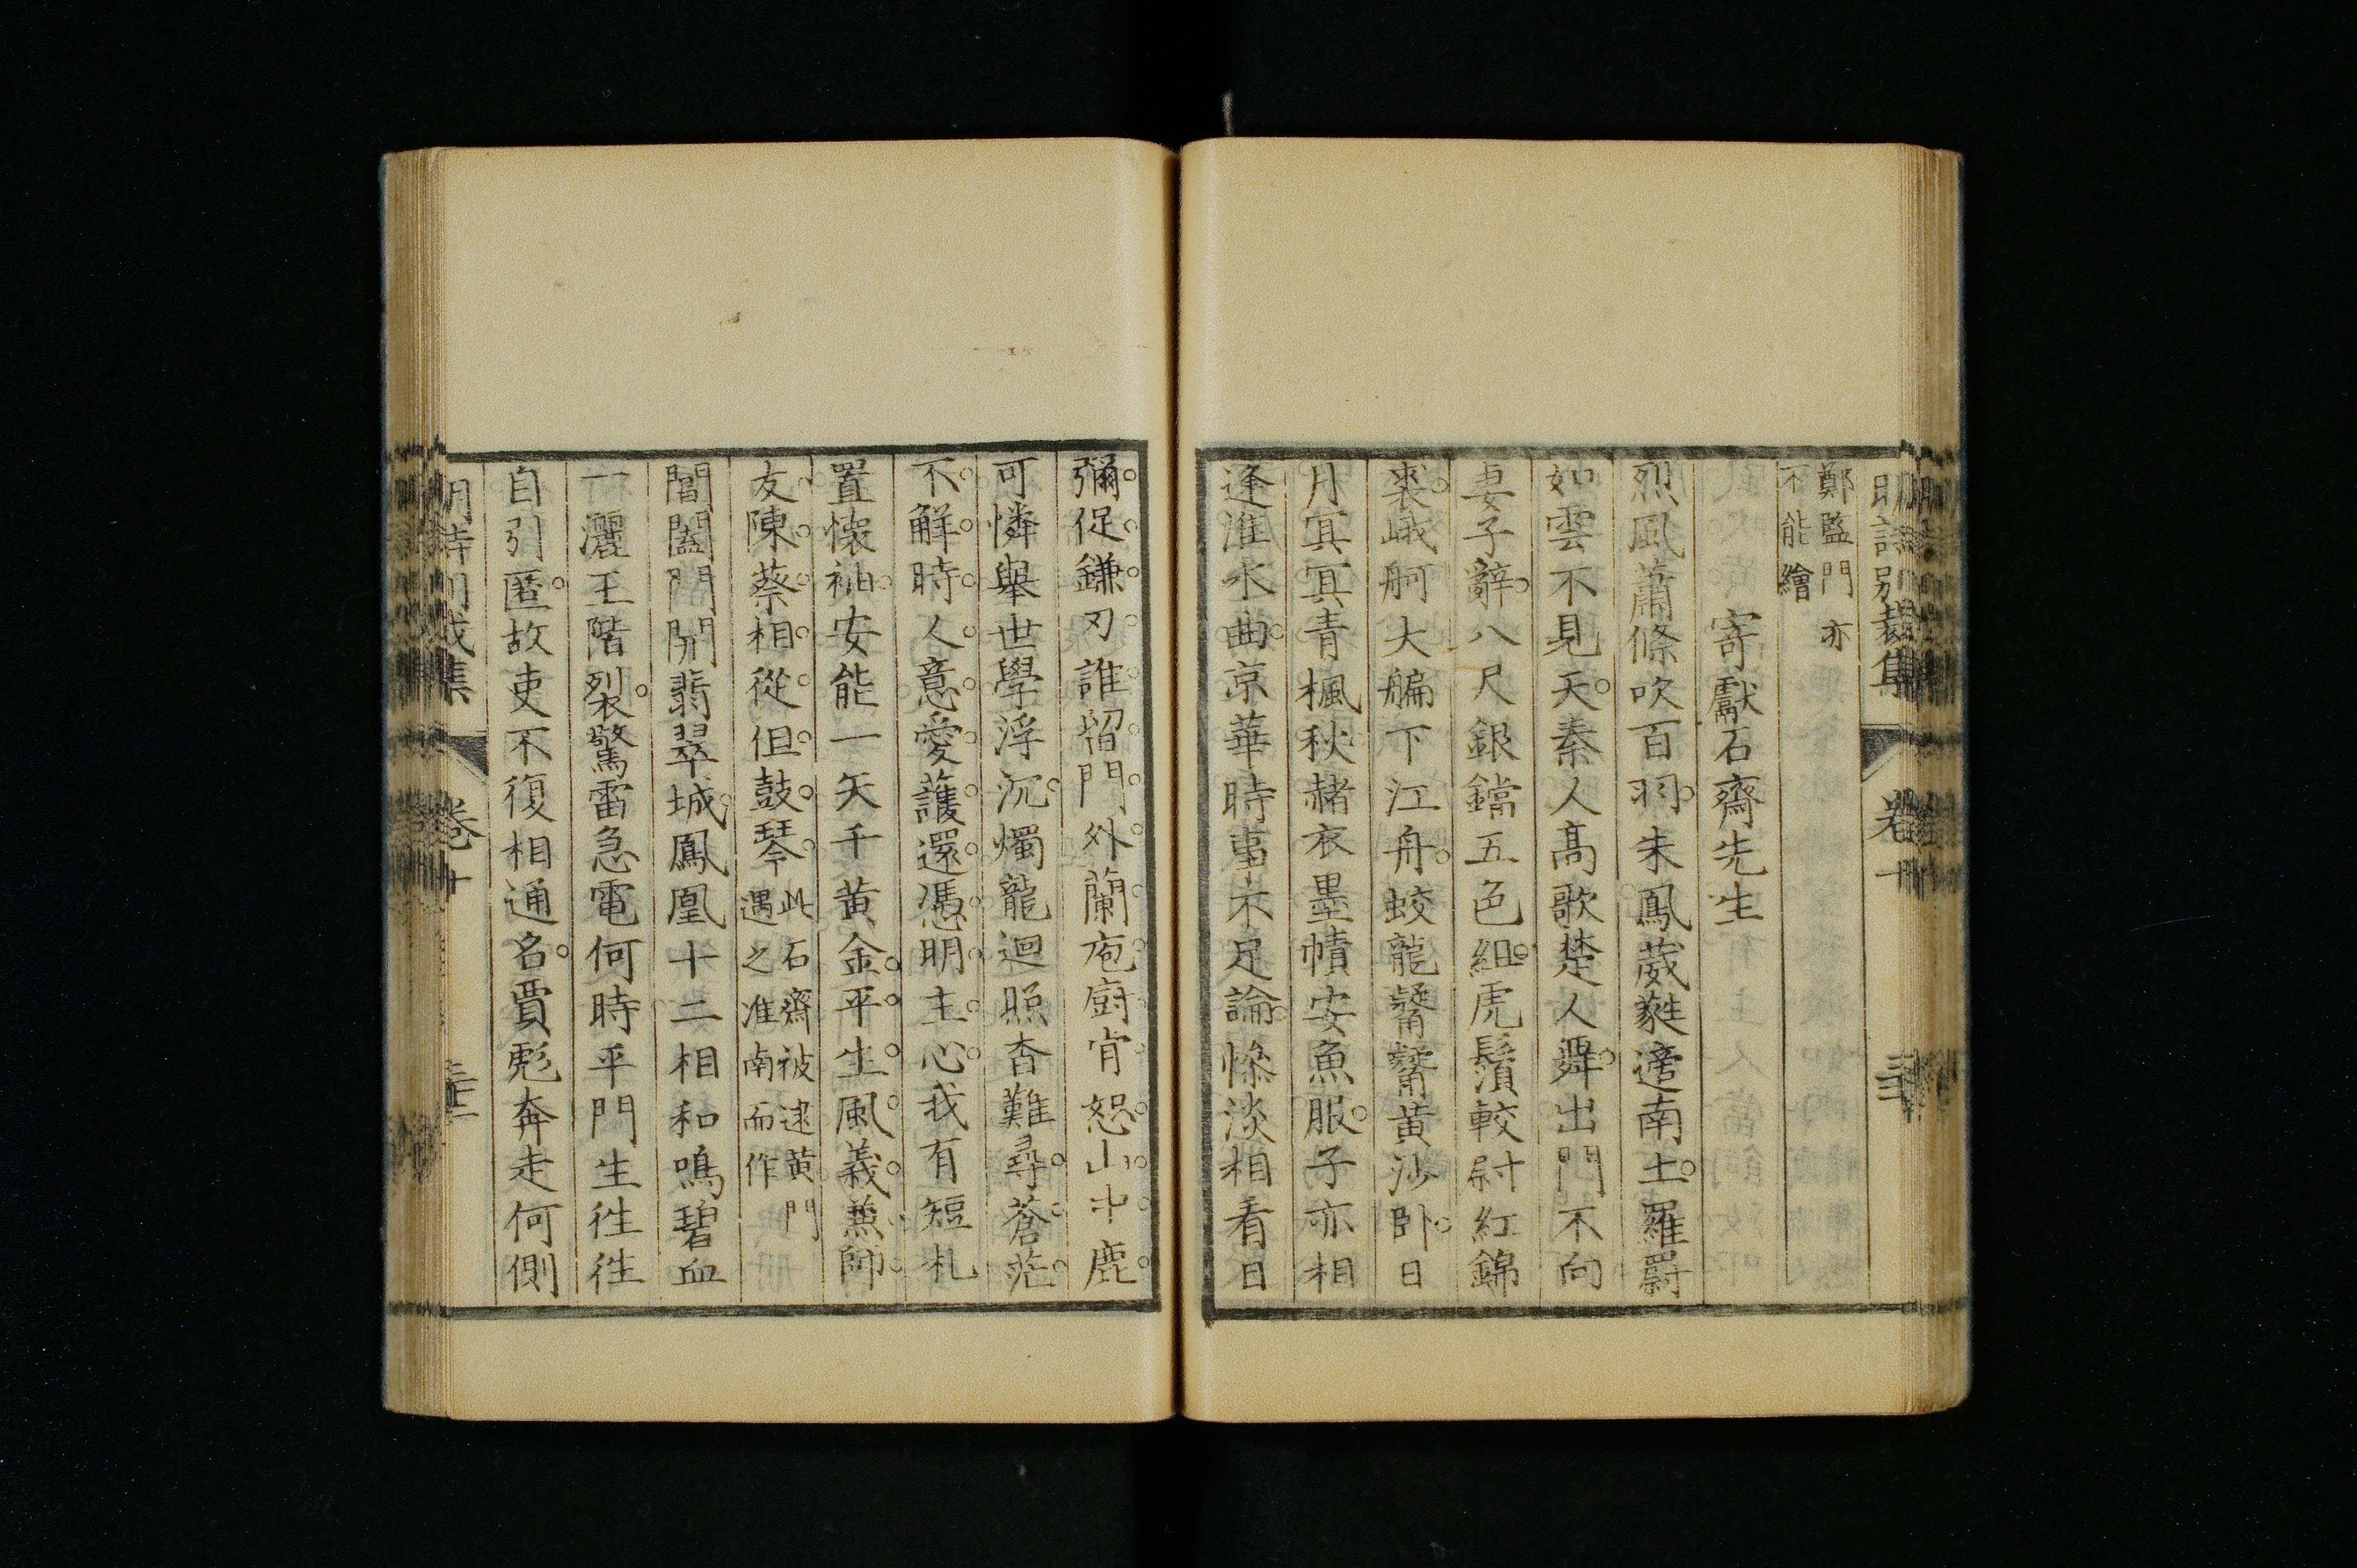 明詩別裁集 卷十
鄭監門亦
不能繪
寄獻石齋先生
烈風蕭條吹百羽朱鳳葳蕤適南土羅罻
如雲不見天秦人高歌楚人舞出門不向
妻子辭八尺銀鐺五色組虎鬚較尉紅錦
裘峨舸大艑下江舟蛟龍䰇䰇黃沙臥日
月冥冥青楓秋赭衣墨幘安魚服子亦相
逢淮水曲京華時事不足論慘淡相看日
彌促鎌刃誰留門外蘭庖廚肯恕山中鹿
可憐舉世學浮沉燭龍迴照杳難尋蒼茫
不解時人意愛護還憑明主心我有短札
置懷袖安能一矢千黃金平生風義兼師
友陳蔡相從但鼓琴
此石齋被逮黃門
遇之淮南而作
閶闔門開翡翠城鳳凰十二相和鳴碧血
一灑玉階裂驚雷急電何時平門生往往
自引匿故吏不復相通名賈彪奔走何側
卷十